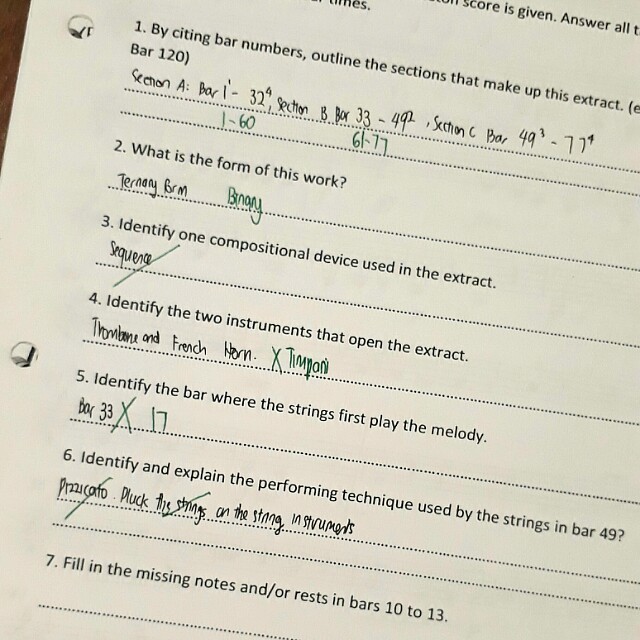 times.
score is given. Answer all
1. By citing bar numbers, outline the sections that make up this extract. (e
Bar 120)
Section A: Bar 1¹ - 32⁴, Section B Bar 33 - 49², Section C Bar 49³ - 77⁴
1-60 61-77
2. What is the form of this work?
Ternary Form Binary
3. Identify one compositional device used in the extract.
Sequence
4. Identify the two instruments that open the extract.
Trombone and French Horn. X Timpani
5. Identify the bar where the strings first play the melody.
Bar 33 X 17
6. Identify and explain the performing technique used by the strings in bar 49?
Pizzicato. Pluck the strings on the string instruments
7. Fill in the missing notes and/or rests in bars 10 to 13.